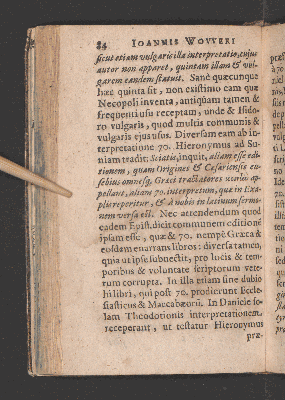 84 IOANNIS WOVVERI
sicut etiam vulgaris illa interpretatio, cujus
autor non apparet, quintam illam & vul-
garem eandem statut. Sanè quæcunque
hæc quinta sit, non existimo eam quæ
Necopoli inventa, antiquam tamen &
frequenti usu receptam, unde & Isido-
ro vulgaris, quod multis communis &
vulgaris ejus usus. Diversam eam ab in-
terpretatione 70. Hieronymus ad Su-
niam tradit: Sciatis, inquit, aliam esse edi-
tionem, quam Origines & Cæsariensis eu-
sebius omnesq; Græci tractatores
pellant, aliam 70. interpretum, quæ in Exa-
plis reperitur, & à nobis in latinum sermo-
nem versa est. Nec attendendum quod
eadem Epist. dicit communem editionē
ipsam esse, quæ & 70. nempè Græca &
eosdam enarrans libros: diversa tamen,
quia ut ipse subnectit, pro locis & tem-
poribus & voluntate scriptorum vete-
rum corrupta. In illa etiam sine dubio
hi libri, qui post 70. prodierunt Eccle-
siasticus & Maccabæorū. In Daniele so-
lam Theodotionis interpretationem
receperant, ut testatur Hieronymus
præ-